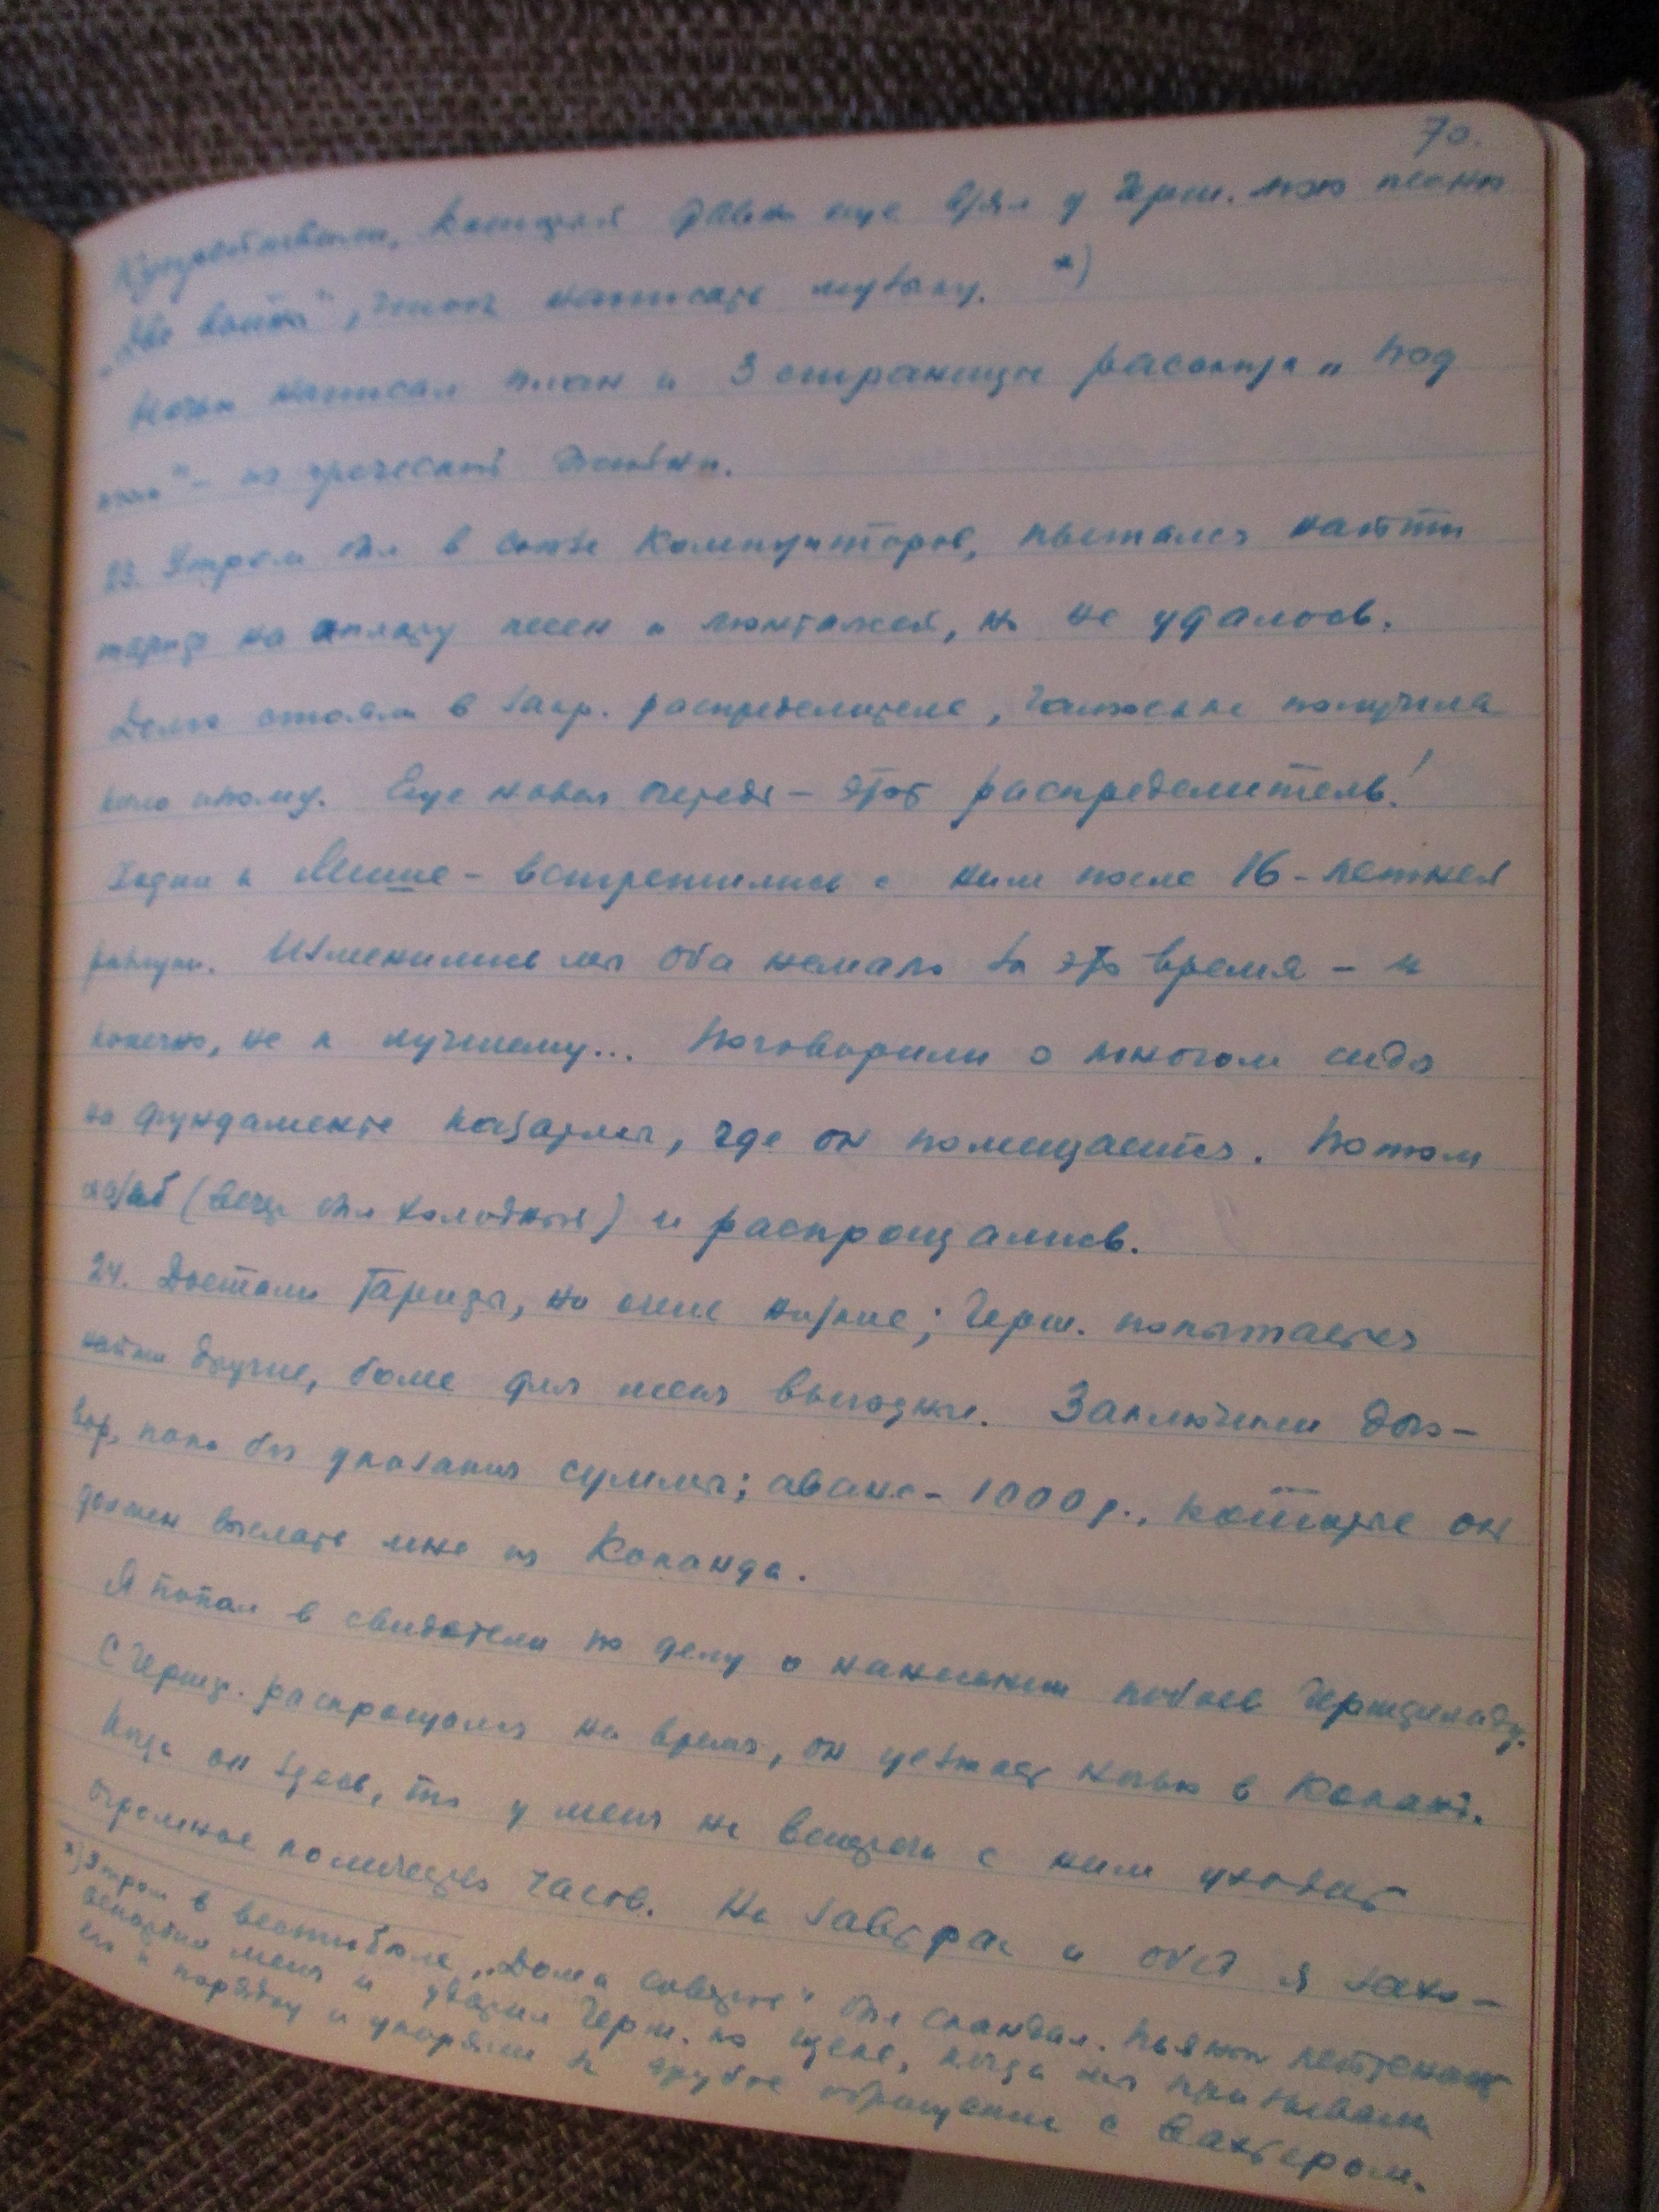 70.
который давно еще взял у Черш. мою песню
"Две войны", чтоб написать музыку. *)
Ночью написал план и 3 страницы рассказа „Под
" - из греческой жизни.
23. Утром был в Союзе Композиторов, пытался найти
тариф на оплату песен и монтажей, но не удалось.
Долго стояли в распределителе, получила
Еще новая очередь - этот распределитель!
Ходил к Мише - встретились с ним после 16-летней
разлуки. Изменились мы оба немало за это время - и
конечно, не к лучшему... Поговорили о многом сидя
на фундаменте казармы, где он помещается. Потом
озяб (вечер был холодный) и распрощались.
24. Достали тарифы, но очень низкие; Черш. попытается
найти другие, более для меня выгодные. Заключили дого-
вор, пока без указания суммы; аванс - 1000 р., которые он
должен выслать мне из Коканда.
Я попал в свидетели по делу о нанесении побоев
С распрощался на время, он уезжает ночью в Коканд.
Когда он здесь, то у меня на встречи с ним уходит
огромное количество часов. На завтрак и обед я захо-
*) Утром в вестибюле „Дома советов" был скандал. Пьяный лейтенант
оскорбил меня и ударил Черш. по щеке, когда мы призывали
его к порядку и укоряли за грубое обращение с вахтером.